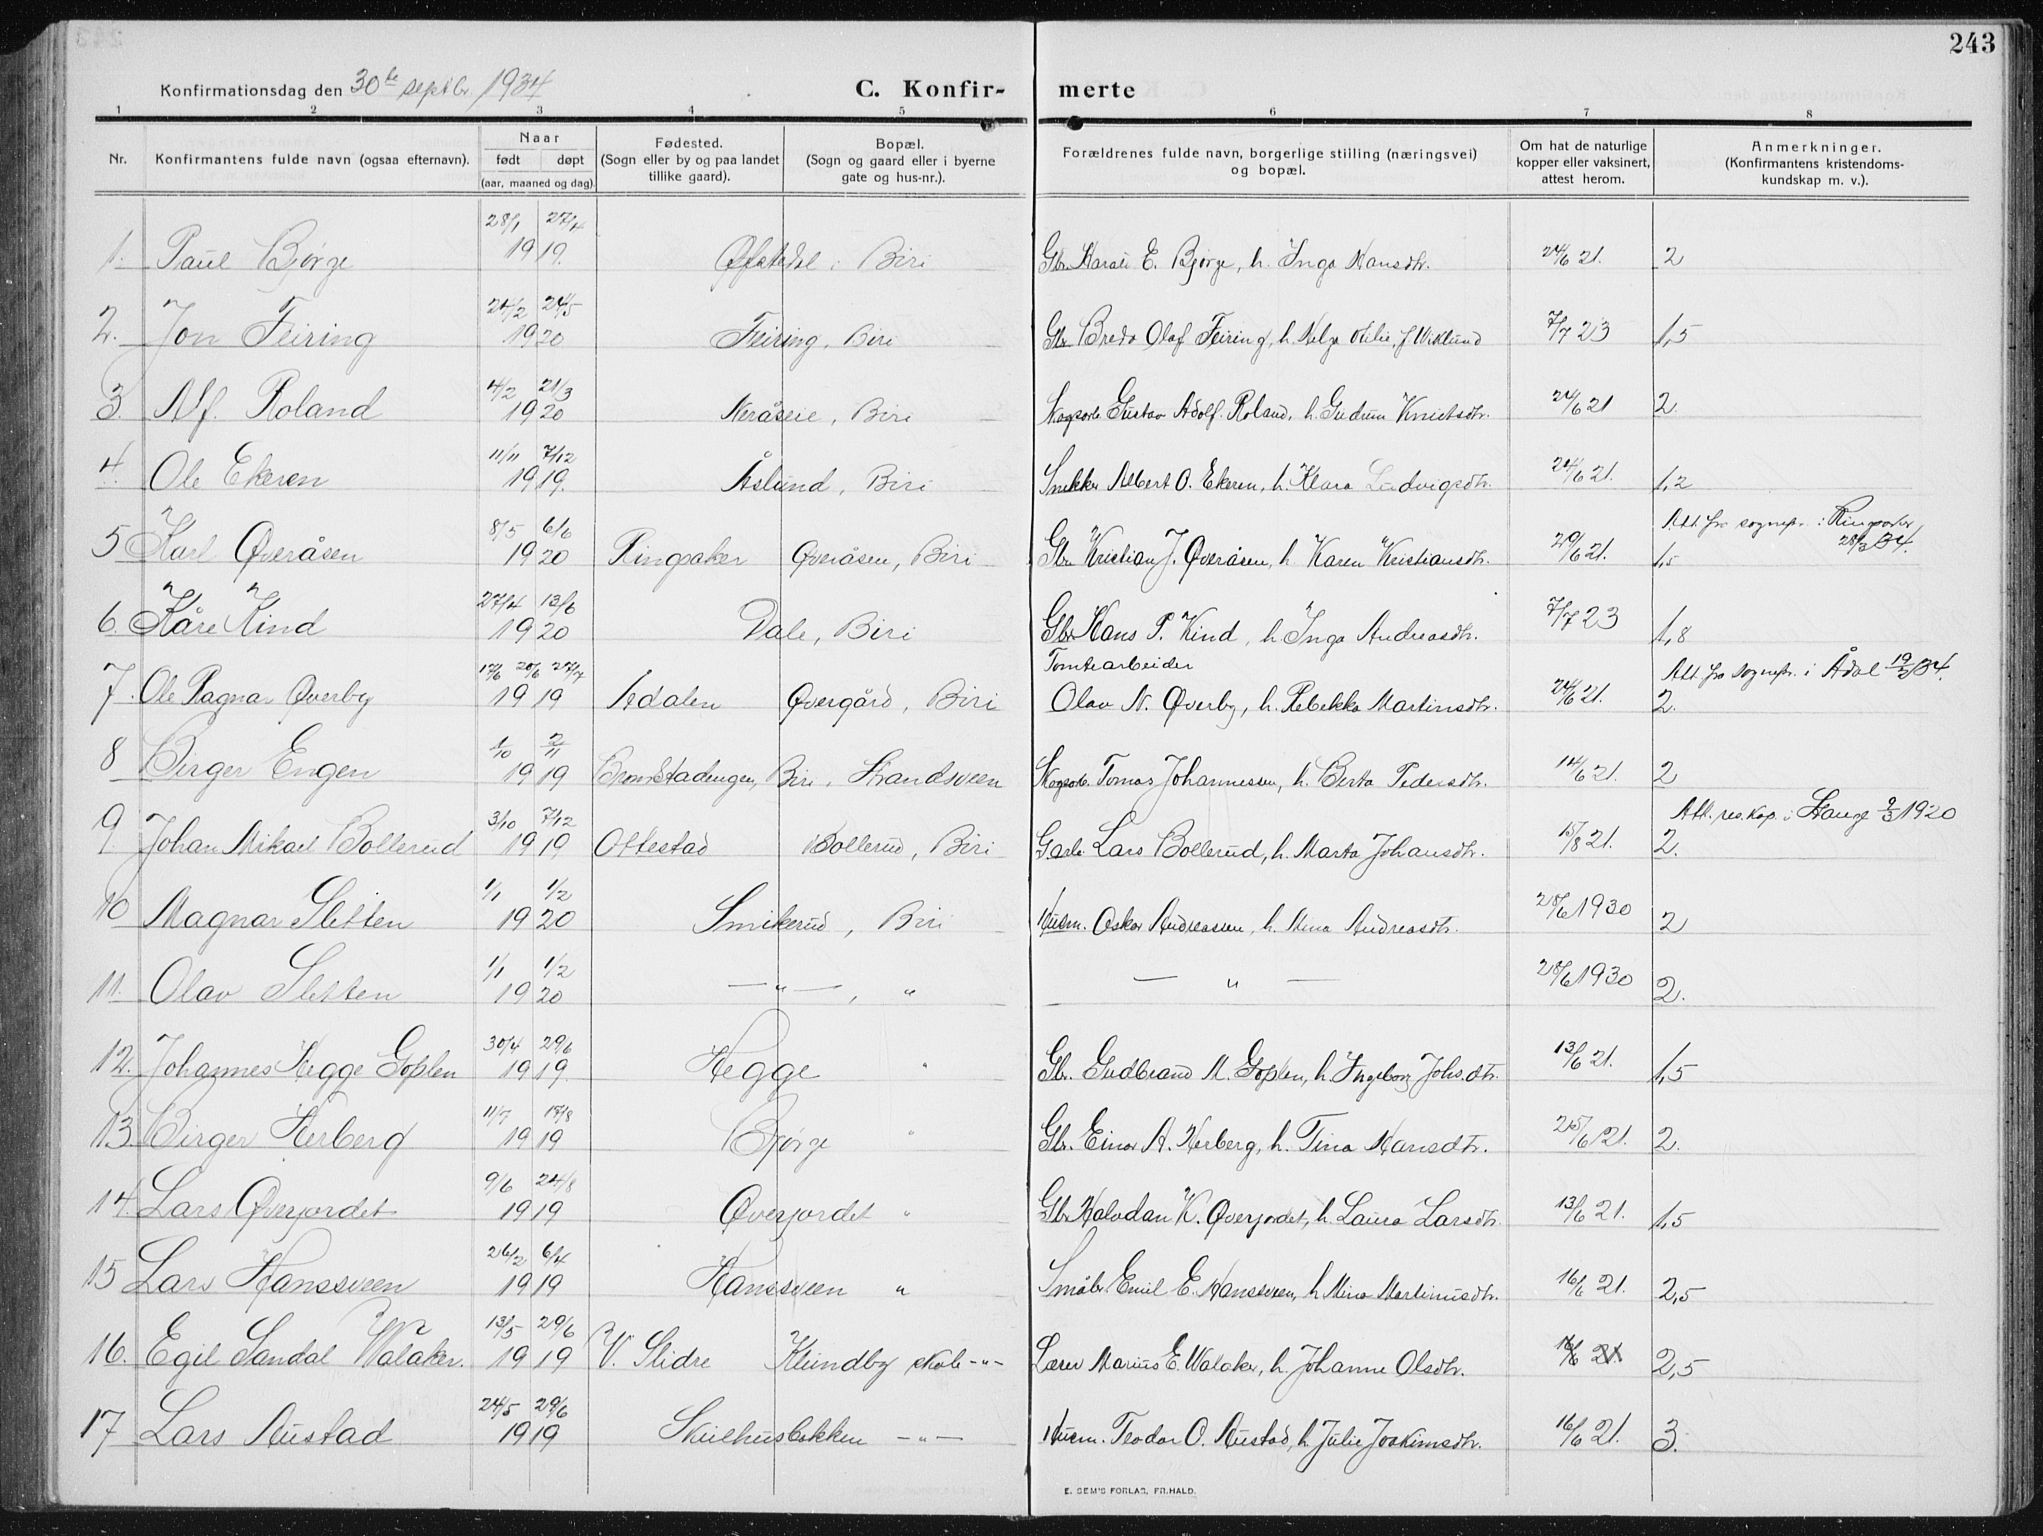 243
Konfirmationsdag den 30te septbr. 1934
C. Konfir- merte
1 2 3 4 5 6 7 8
Nr. Konfirmantens fulde navn (ogsaa efternavn). Naar født døpt (aar, maaned og dag). Fødested. (Sogn eller by og paa landet tillike gaard). Bopæl. (Sogn og gaard eller i byerne gate og hus-nr.). Forældrenes fulde navn, borgerlige stilling (næringsvei) og bopæl. Om hat de naturlige kopper eller vaksinert, attest herom. Anmerkninger. (Konfirmantens kristendoms- kundskap m. v.).
28/1 27/4
1. Paul Bjørge 1919. Øfstedal i Biri Gbr. E. Bjørge, h. Inga Hansdtr. 24/6 21. 2
21/2 24/5
2. Jon Feiring 1920 Feiring, Biri Gbr. Bredo Olaf Feiring, h. Helga Otilie J. Wiklund 7/7 23 1,5
4/2 21/3
3. Alf. Roland 1920 Neråseie, Biri Skogsarb. Gustav Adolf Roland, h. Gudrun Knutsdtr. 24/6 21 2.
11/11 7/12
4. Ole Ekeren 1919. Åslund, Biri Snekker Albert O. Ekeren, h. Klara Ludvigsdtr. 24/6 21. 1,2
8/5 6/6 Att. fra sognepr. i Ringsaker 28/3 34.
5 Karl Øveråsen 1920 Ringsaker Øveråsen, Biri Gbr. Kristian J. Øveråsen, h. Karen Kristiansdtr. 29/6 21. 1,5
27/4 13/6
6. Kåre Kind 1920 Dale, Biri Gbr. Hans P. Kind, h. Inga Andreasdtr. 7/7 23 1,8
27/7 Tomtearbeider Att. fra sognepr. i Ådal 19/3 34.
7. Ole Ragnar Øverby 1919 Ådalen Øvergård, Biri Olav N. Øverby, h. Rebekka Martinsdtr. 24/6 21. 2.
1/10 2/11
8 Birger Engen 1919 Bronstadengen, Biri, Strandsveen Skogsarb. Tomas Johannessen, h. Berta Pedersdtr. 14/6 21. 2
3/10 7/12 Att. res. kap. i Stange 9/3 1920
9. Johan Mikael Bollerud 1919 Ottestad Bollerud, Biri Lars Bollerud, h. Marta Johansdtr. 15/8 21. 2.
1/1 1/2
10 Magnar Sletten 1920 Smikerud, Biri Husm. Oskar Andreassen, h. Mina Andreasdtr. 28/6 1930 2
1/1 1/2
11. Olav Sletten 1920 — " —, " — " — 28/6 1930 2.
30/4 29/6
12. Johannes Hegge Goplen 1919. Hegge " Gbr. Gudbrand M. Goplen, h. Ingeborg Johs.dtr. 13/6 21. 1,5
11/7 17/8
13. Birger Herberg 1919 Bjørge " Gbr. Einar A. Herberg, h. Tina Hansdtr. 25/6 21. 2.
9/6 24/8
14. Lars Øverjordet 1919 Øverjordet " Gbr. Halvdan K. Øverjordet, h. Laura Larsdtr. 13/6 21. 1,5
26/2 6/4
15 Lars Hanssveen 1919 Hanssveen " Småbr. Emil E. Hanssveen, h. Mina Martinusdtr. 16/6 21. 2,5
13/5 29/6
16. Egil Sandal Walaker. 1919 V. Slidre Klundby skole -"- Lærer Marius E. Walaker, h. Johanne Olsdtr. 16/6 21 2,5
24/5 29/6
17 Lars Austad 1919 Skulhusbakken — " — Husm. Teodor O. Austad, h. Julie Joakimsdtr. 16/6 21. 3.
E. SEM'S FORLAG, FR.HALD.